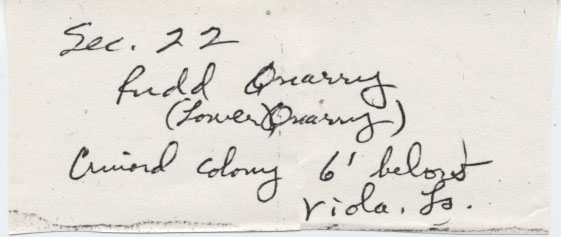 Sec. 22
Rudd Quarry
(Lower Quarry)
Crinoid colony 6' below
Viola. Ls.